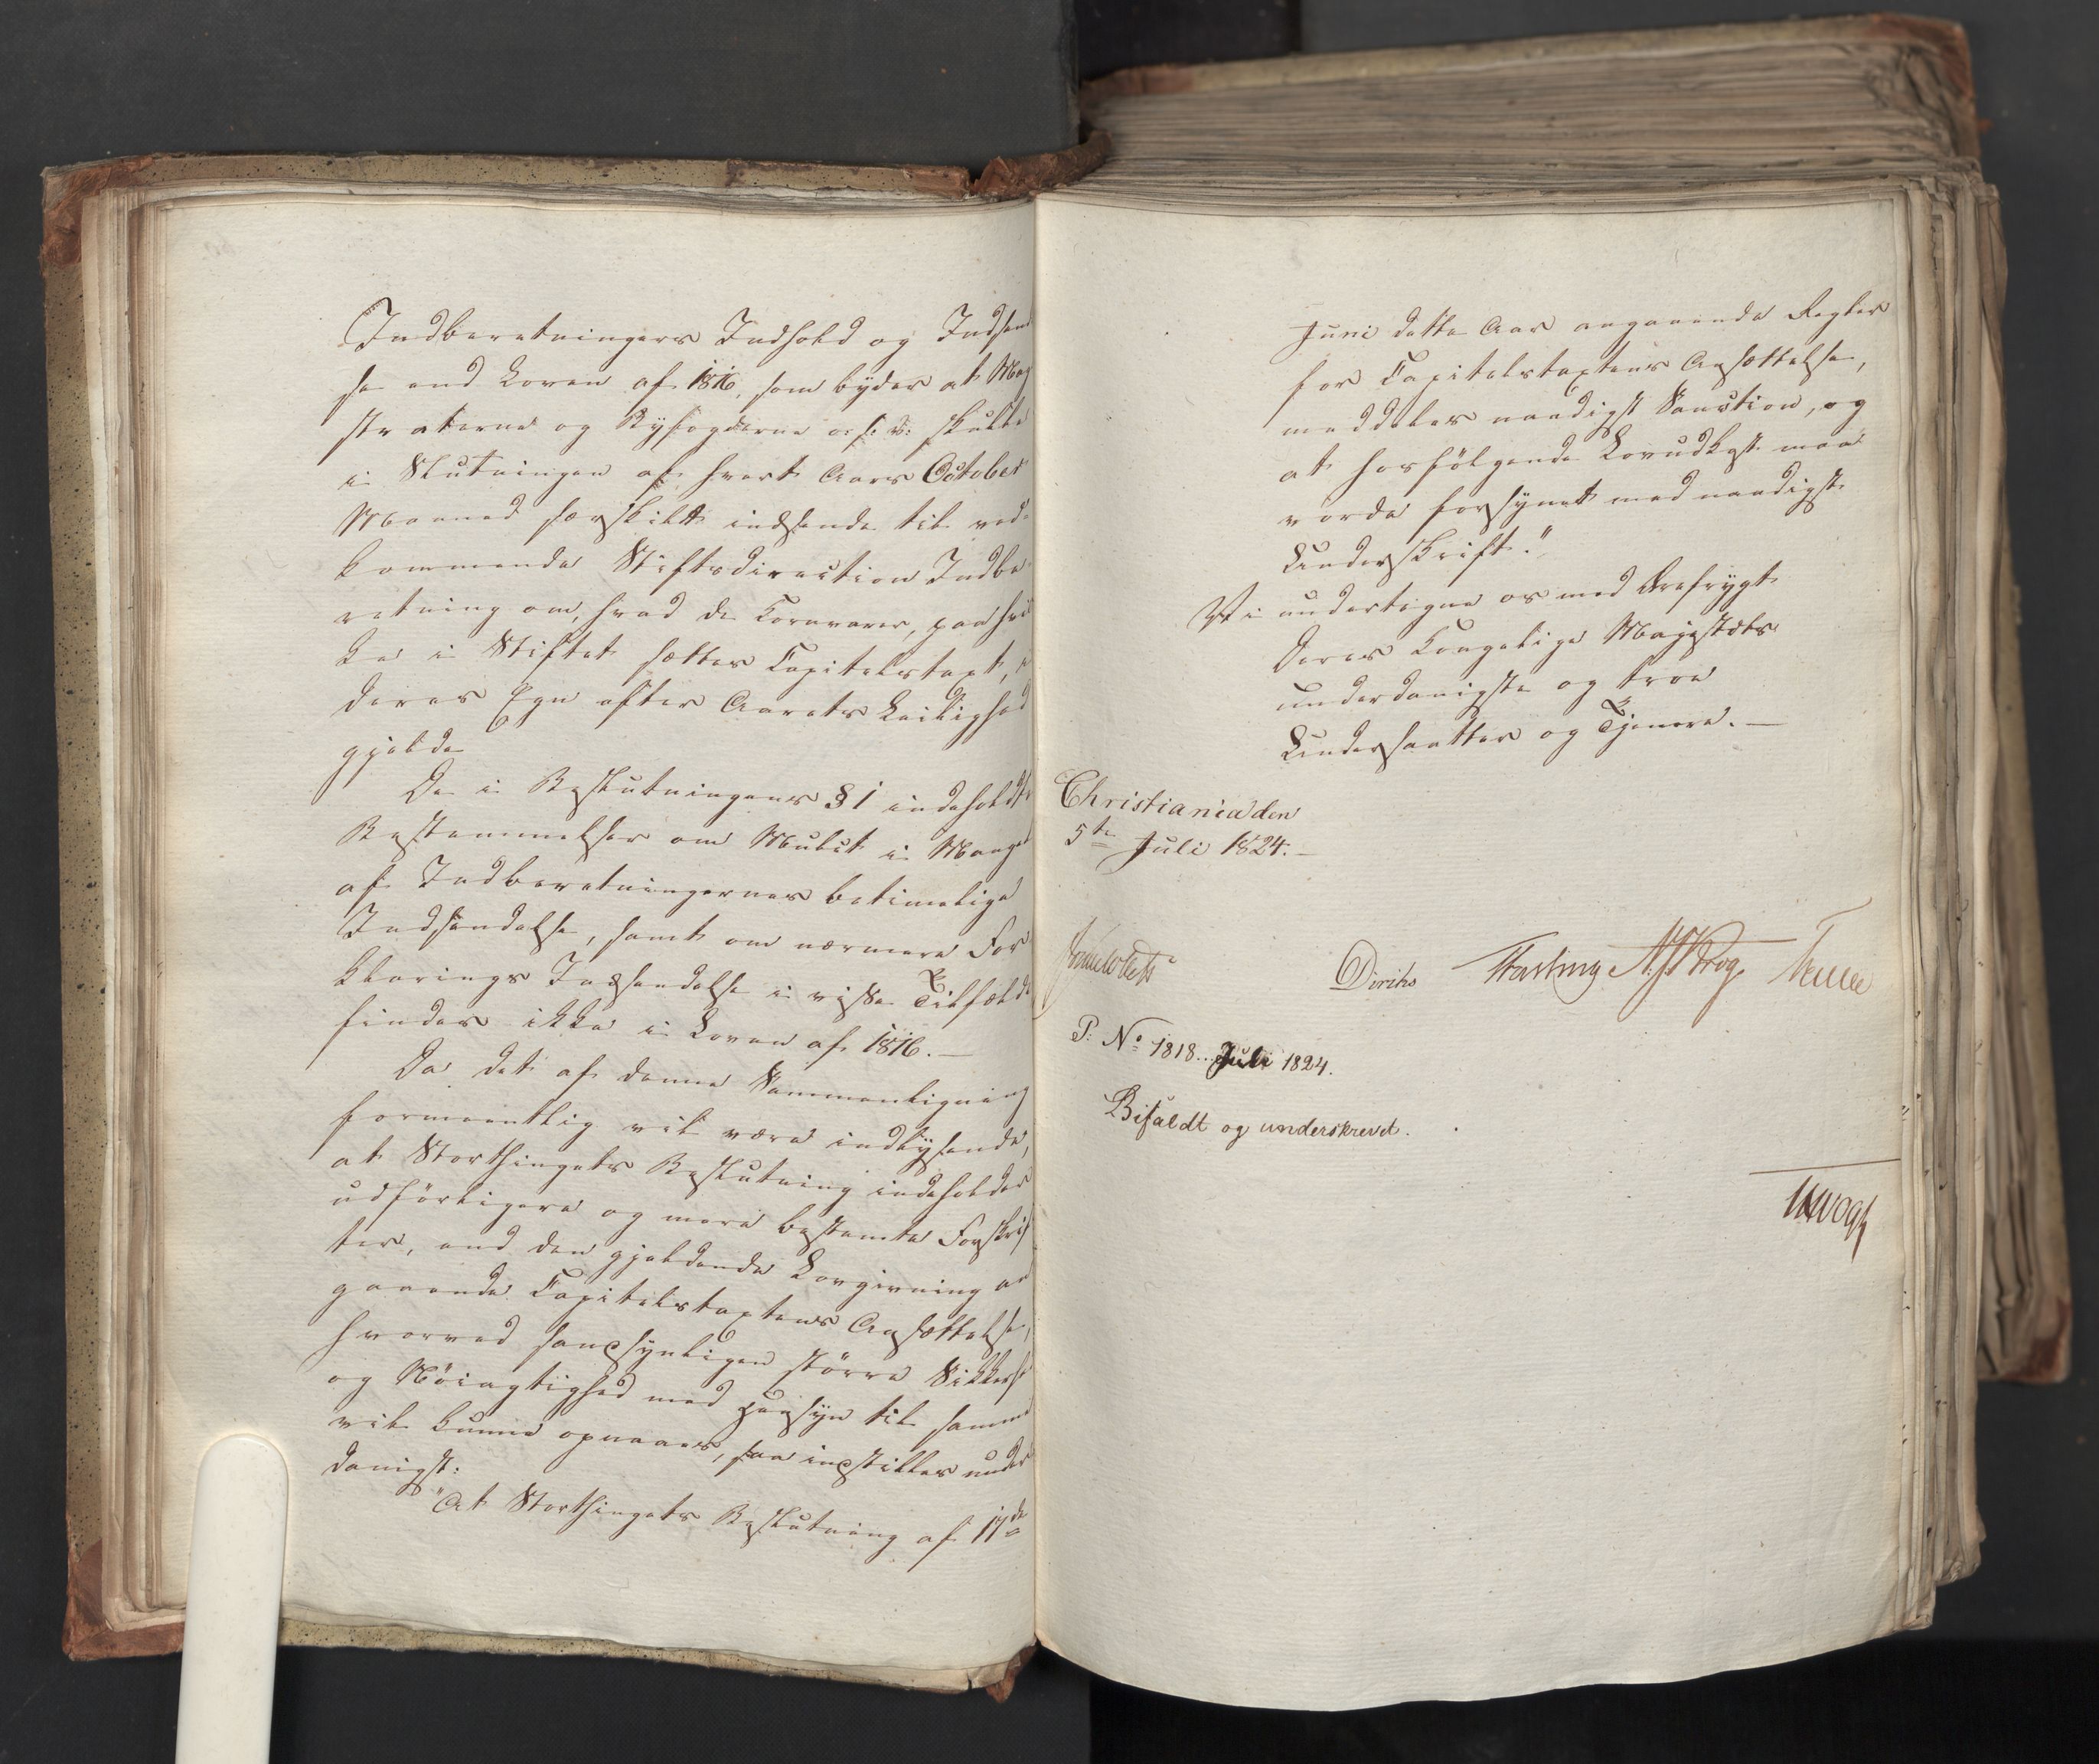 Indberetningers Indhold og Indsend
se end Loven af 1816, som byder at Mag
straterne og Byfogderne o: s: v: skulle
i Slutningen af hvert Aars October
Maaned særskilt indsende til ved-
kommende Stiftsdirection Indbe-
retning om, hvad de Kornvarer, paa hvil
ke i Stiftet sættes Capitelstaxt, i
deres Egn efter Aarets Leilighed
gjelde
De i Beslutningens § 1 indeholdte
Bestemmelser om Mulct i Mangel
af Indberetningernes betimelige
Indsendelse, samt om nærmere For
klarings Indsendelse i visse Tilfælde
findes ikke i Loven af 1816. —
Da det af denne Sammenligning
formeentlig vil være indlysende,
at Storthingets Beslutning indeholder
udførligere og mere bestemte Forskrif
ter, end den gjeldende Lovgivning an
gaaende Capitelstaxtens Ansættelse,
hvorved sandsynligen større Sikkerh
og Nöiagtighed med Hensyn til samme
vil kunne opnaaes, saa indstilles under
danigst:
"At Storthingets Beslutning af 17de
Juni dette Aar angaaende Regler
for Capitelstaxtens Ansættelse,
meddeles naadigst Sanction, og
at hosfölgende Lovudkast maa
vorde forsynet med naadigste
Underskrift."
Vi undertegne os med Ærefrygt
Deres Kongelige Majestæts
underdanigste og troe
Undersaatter og Tjenere. —
Christiania den
5te Juli 1824. —
Sommerhielm Diriks Fasting Krog Treschow
P: No 1818... Juli 1824.
Bifaldt og underskrevet.